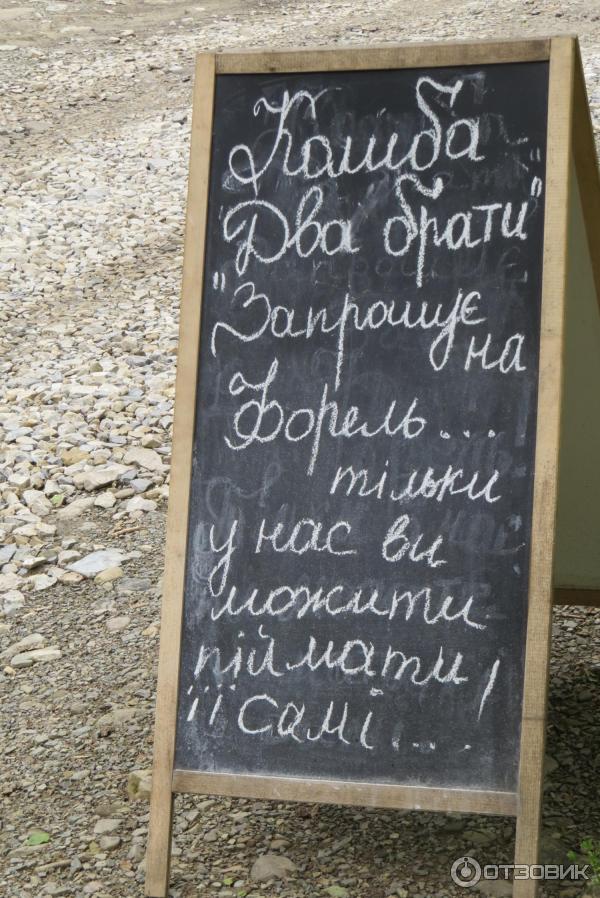 Колиба
"Два брати"
Запрошує
на
Форель...
тільки
у нас ви
можити
піймати
її самі....!
ОТЗОВИК